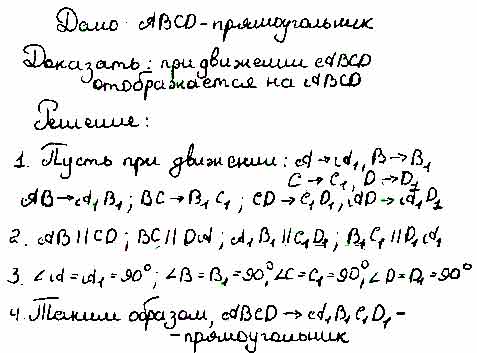 Дано ABCD-прямоугольник
Доказать: при движении ABCD
отображается на ABCD
Решение:
1. Пусть при движении: A→A₁, B→B₁
C→C₁, D→D₁
AB→A₁B₁; BC→B₁C₁; CD→C₁D₁, AD→A₁D₁
2. AB∥CD; BC∥DA; A₁B₁∥C₁D₁; B₁C₁∥D₁A₁
3. ∠A=A₁=90°; ∠B=B₁=90°, ∠C=C₁=90°, ∠D=D₁=90°
4. Таким образом, ABCD→A₁B₁C₁D₁-
-прямоугольник